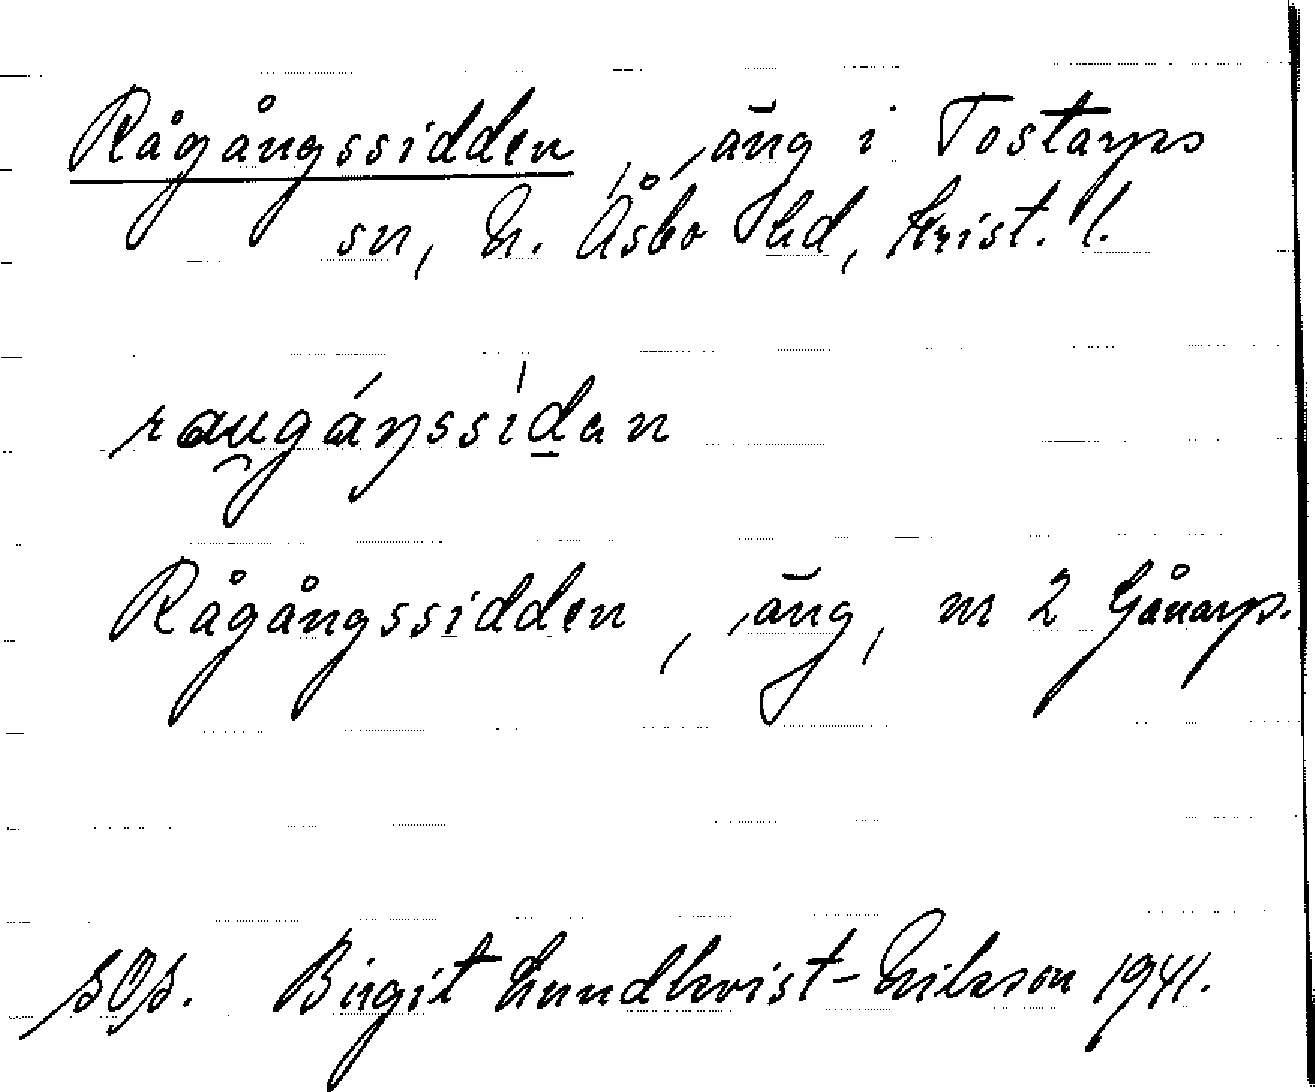 Rågångssidden, äng i Tostarps
sn, N. Åsbo hd, Krist. l.
rau̯gáŋssídan
Rågångssidden, äng, nr 2 Gånarp.
SOS. Birgit Lundkvist-Nilsson 1941.